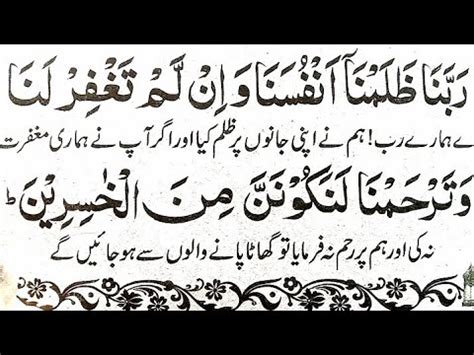 رَبَّنَا ظَلَمْنَآ اَنْفُسَنَا وَاِنْ لَّمْ تَغْفِرْ لَنَا
ے ہمارے رب! ہم نے اپنی جانوں پر ظلم کیا اور اگر آپ نے ہماری مغفرت
وَتَرْحَمْنَا لَنَكُوْنَنَّ مِنَ الْخٰسِرِيْنَ ؕ
نہ کی اور ہم پر رحم نہ فرمایا تو گھاٹا پانے والوں سے ہو جائیں گے